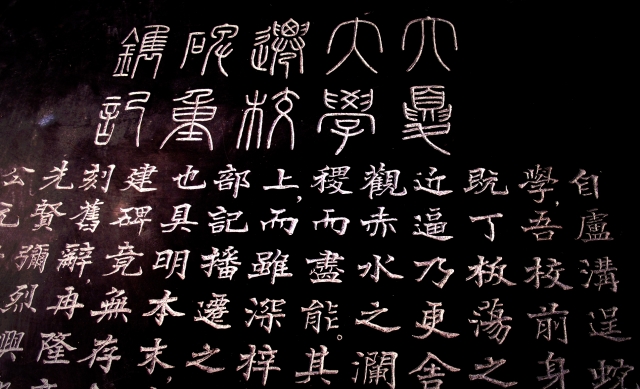 大夏
大學
遷校
碑重
鐫記
自盧溝逞
學,吾校前身
既丁板蕩之
近逼乃更舍
觀赤水之瀾
稷而盡能。其
上,而雖深梓
部記播遷之
也具明本末,
建碑竟無存
刻舊辭,再隆
先賢彌烈興
公元